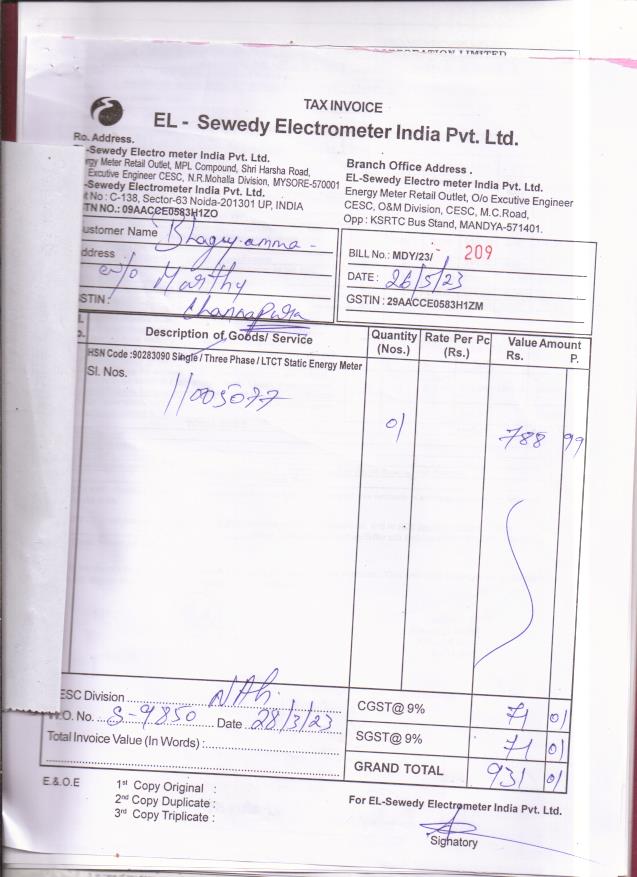 TAX INVOICE
EL - Sewedy Electrometer India Pvt. Ltd.
Ro. Address.
-Sewedy Electro meter India Pvt. Ltd.
rgy Meter Retail Outlet, MPL Compound, Shri Harsha Road,
Excutive Engineer CESC, N.R.Mohalla Division, MYSORE-570001
-Sewedy Electrometer India Pvt. Ltd.
t No : C-138, Sector-63 Noida-201301 UP, INDIA
TN NO.: 09AACCE0583H1ZO
Branch Office Address .
EL-Sewedy Electro meter India Pvt. Ltd.
Energy Meter Retail Outlet, O/o Excutive Engineer
CESC, O&M Division, CESC, M.C.Road,
Opp : KSRTC Bus Stand, MANDYA-571401.
ustomer Name Bhagyamma -
ddress
w/o Marthy
STIN : Channapatra
BILL No.: MDY/23/- 209
DATE : 26/5/23
GSTIN : 29AACCE0583H1ZM
Description of Goods/ Service
Quantity (Nos.)
Rate Per Pc (Rs.)
Value Amount
Rs. P.
HSN Code :90283090 Single / Three Phase / LTCT Static Energy Meter
Sl. Nos.
11005077
01 788 99
ESC Division
W.O. No. S-9850 Date 28/3/23
Total Invoice Value (In Words) :
CGST@ 9% 71 01
SGST@ 9% 71 01
GRAND TOTAL 931 01
E.& O.E
1st Copy Original :
2nd Copy Duplicate :
3rd Copy Triplicate :
For EL-Sewedy Electrometer India Pvt. Ltd.
Signatory